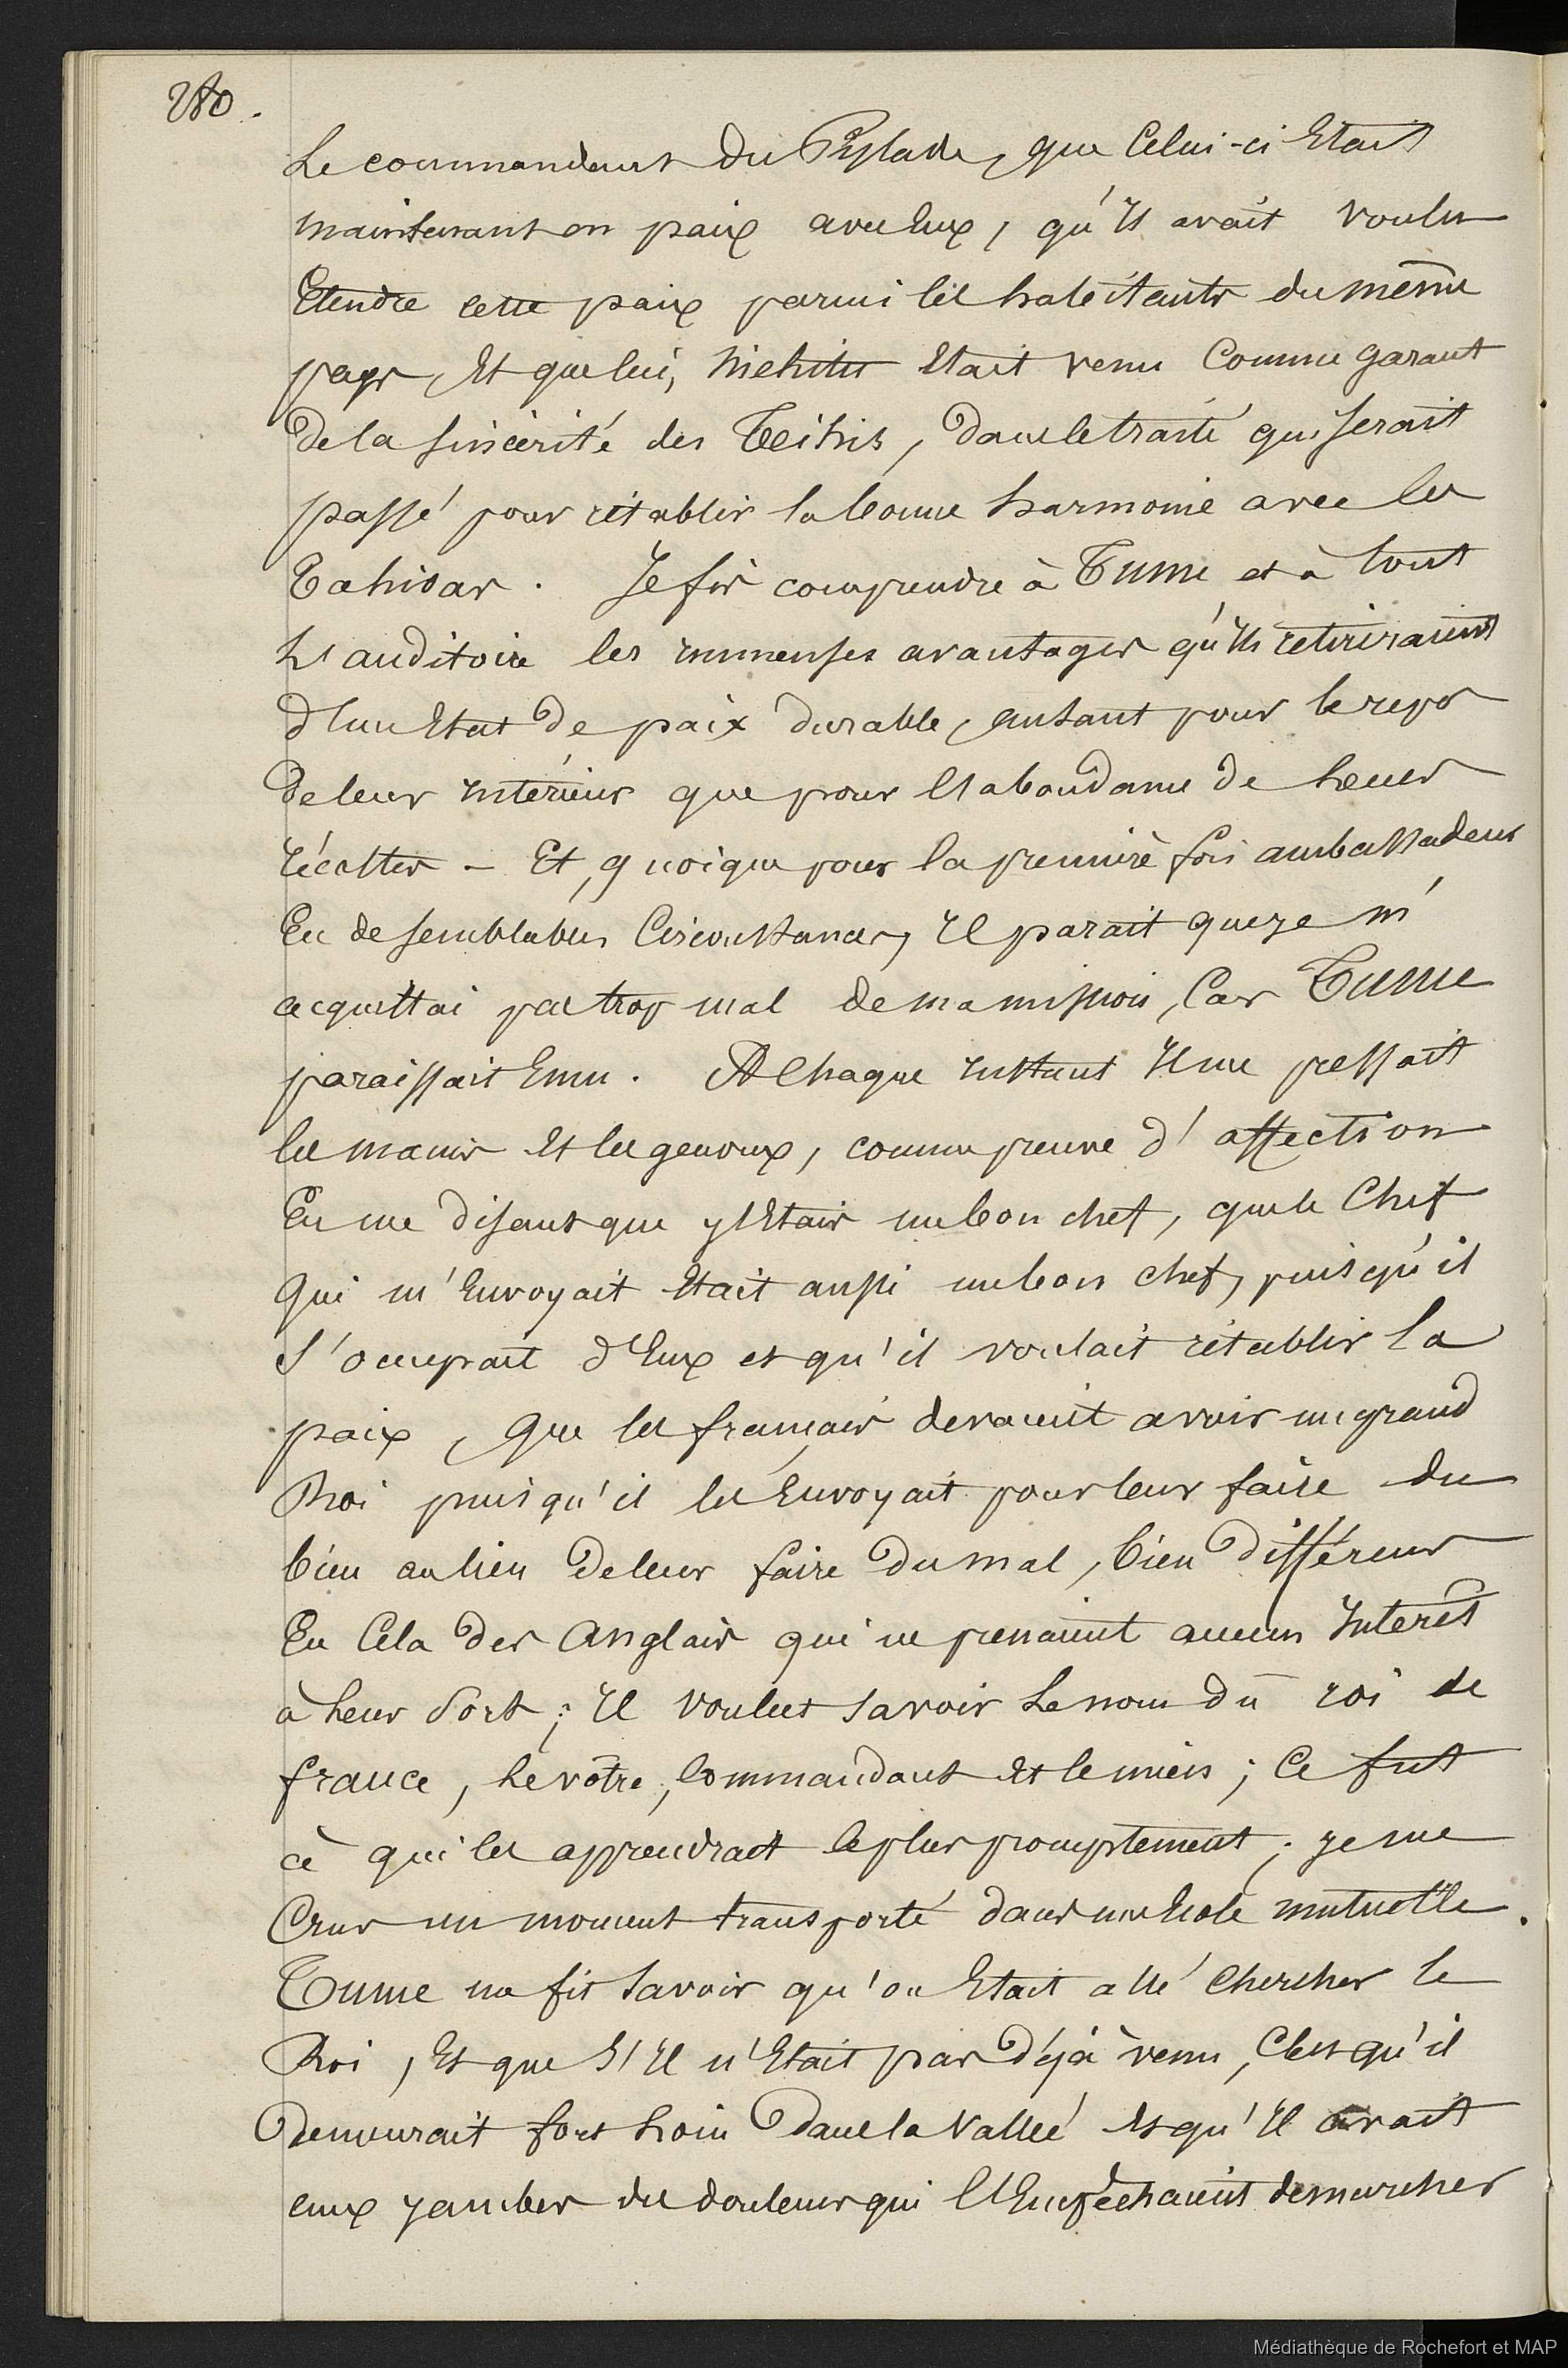 280.
Le commandant du Pylade, que Celui-ci Etait
maintenant en paix avec Eux, qu'Il avait voulu
Etendre cette paix parmi les habitants du même
pays, Et que lui, Niehitu Etait venu Comme garant
De la sincérité des Teihis, dans le traité qui serait
passé pour rétablir la bonne harmonie avec les
Tahioas. Je fis comprendre à Tume et à tout
L'auditoire les immenses avantages qu'Ils retireraient
d'un Etat De paix durable, autant pour le repos
De leur intérieur que pour l'abondance de Leurs
récoltes - Et, quoique pour la première fois ambassadeur
En de semblables Circonstances, Il parait que je m'
acquittai pas trop mal de ma mission, Car Tume
paraissait Emu. A Chaque instant Il me pressait
les mains Et les genoux, comme preuve d'affection
En me disant que j'Etais un bon chef, que le Chef
Qui m'Envoyait Etait aussi un bon chef, puisqu'il
S'occupait d'Eux et qu'il voulait rétablir la
paix, Que les français devaient avoir un grand
Roi puisqu'il les Envoyait pour leur faire du
bien au lieu De leur faire Du mal, bien Différens
En Cela Des Anglais qui ne prenaient aucun Intérêt
à Leur Sort; Il voulut savoir Le nom du roi de
france, Le vôtre, Commandant Et le mien; Ce fut
à qui les apprendrait le plus promptement; je me
Crus un moment transporté dans une Ecole mutuelle.
Tume me fit savoir qu'on Etait allé Chercher le
Roi, Et que S'Il n'Etait pas Déjà venu, C'est qu'il
Demeurait fort Loin Dans la Vallée Et qu'Il avait
aux jambes des douleurs qui l'Empêchaient de marcher
Médiathèque de Rochefort et MAP